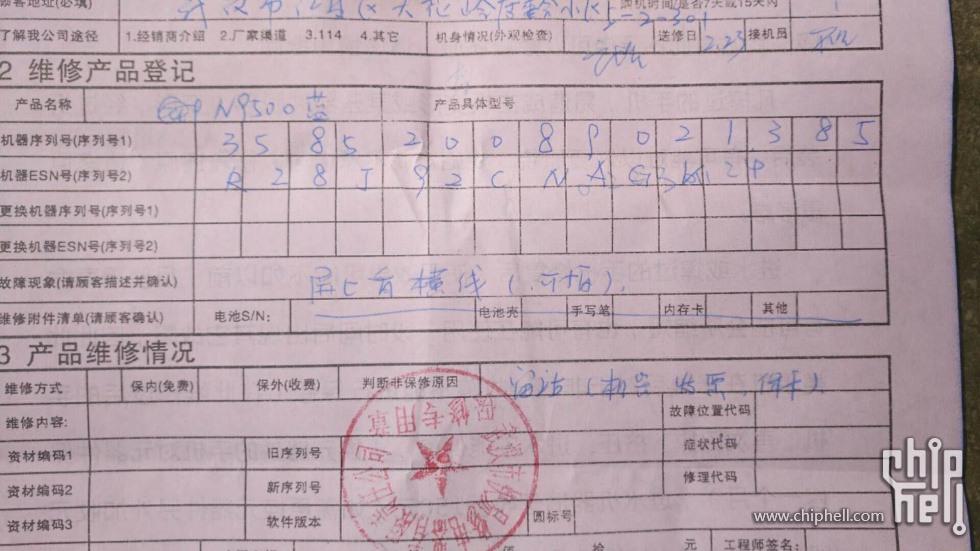 顾客地址(必填) 武汉市江夏区大花岭 小区5-2-301 购机时间是否7天或15天内
了解我公司途径 1.经销商介绍 2.厂家渠道 3.114 4.其它 机身情况(外观检查) 送修日 2.23 接机员
2 维修产品登记
产品名称 N9500蓝 产品具体型号
机器序列号(序列号1) 3 5 8 5 2 0 0 8 9 0 2 1 3 8 5
机器ESN号(序列号2) R 2 8 J 9 2 C N A G 2 P
更换机器序列号(序列号1)
更换机器ESN号(序列号2)
故障现象(请顾客描述并确认) 屏上有横线(可拍).
维修附件清单(请顾客确认) 电池S/N: 电池壳 手写笔 内存卡 其他
3 产品维修情况
维修方式 保内(免费) 保外(收费) 判断非保修原因 (机器 发票
维修内容: 故障位置代码
资材编码1 旧序列号 症状代码
资材编码2 新序列号 修理代码
资材编码3 软件版本 圆标号
保修专用章
佰 拾 元 工程师签名:
chip
hell
www.chiphell.com